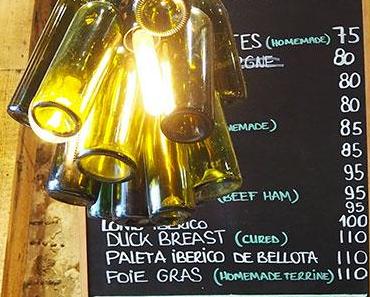 TES (HOMEMADE) 75
80
80
80
EMADE) 85
85
95
(BEEF HAM) 95
95
LOMO IBERICO 100
DUCK BREAST (CURED) 110
PALETA IBERICO DE BELLOTA 110
FOIE GRAS (HOMEMADE TERRINE) 110